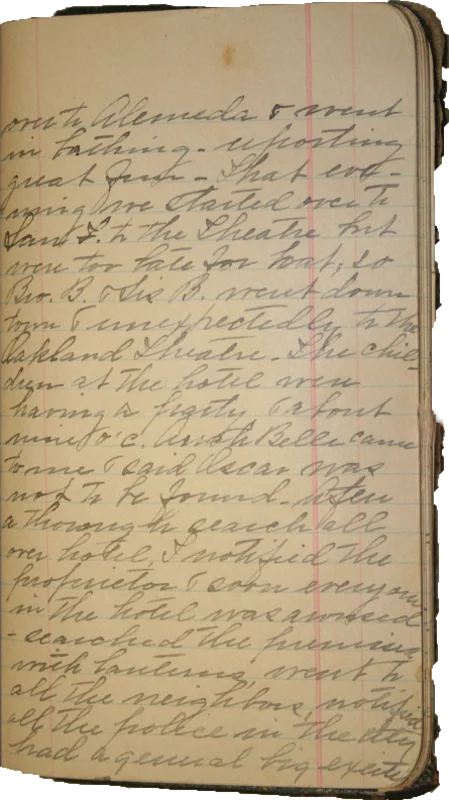 over to Alemeda & went
in bathing - reporting
great fun - That eve-
ning we started over to
San F. to the Theatre but
were too late for boat, so
Bro. B. & Sis B. went down
town & unexpectedly to the
Oakland Theatre - The chil-
dren at the hotel were
having a party & about
nine o'c. Belle came
to me & said Oscar was
not to be found - After
a thorough search all
over hotel, I notified the
proprietor & soon everyone
in the hotel was aroused
- searched the premises
with lanterns, went to
all the neighbors, notified
all the police in the city
had a general big excite